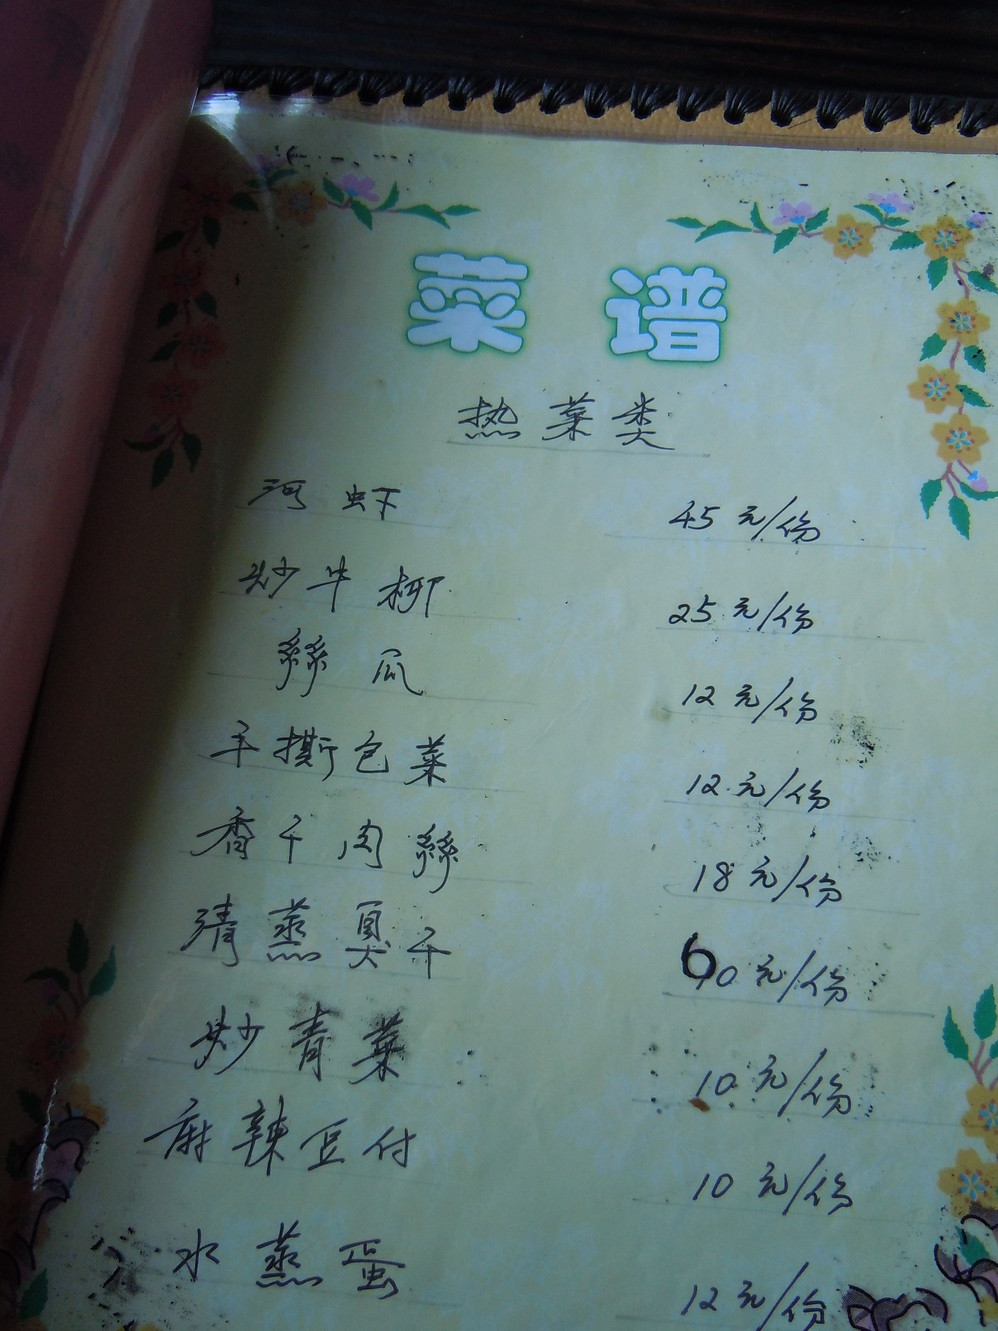 菜谱
热菜类
河虾 45元/份
炒牛柳 25元/份
絲瓜 12元/份
手撕包菜 12元/份
香干肉絲 18元/份
清蒸臭干 60元/份
炒青菜 10元/份
麻辣豆付 10元/份
水蒸蛋 12元/份